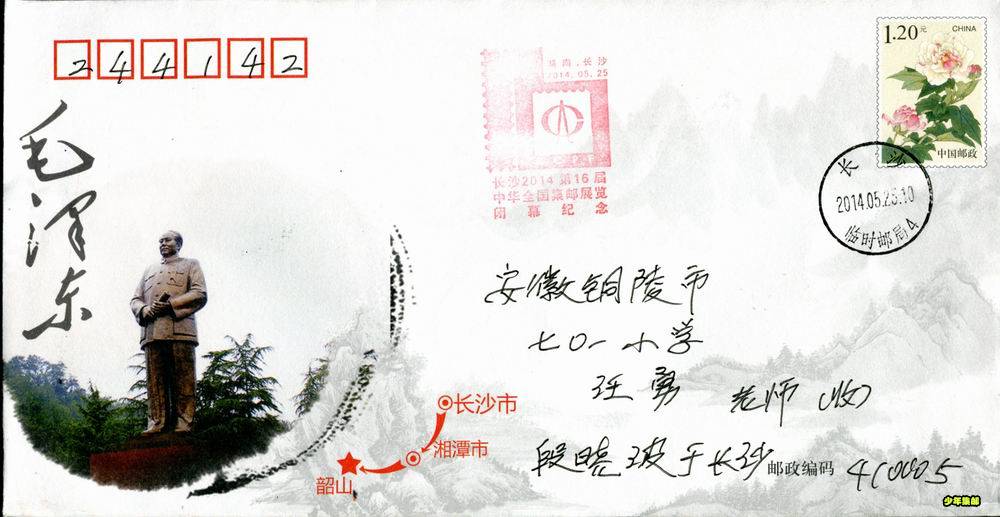 244142
毛泽东
湖南.长沙
2014.05.25
长沙2014第16届
中华全国集邮展览
闭幕纪念
1.20元
CHINA
中国邮政
长沙
2014.05.25.10
临时邮局4
安徽铜陵市
七〇一小学
汪勇 老师 (收)
段晓波于长沙 邮政编码 410005
长沙市
湘潭市
韶山
少年集邮